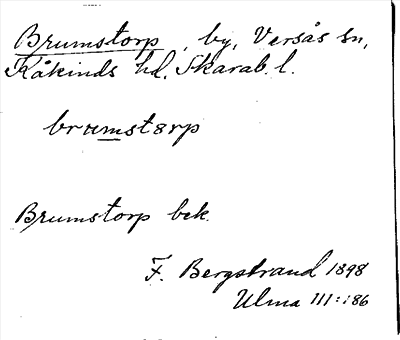 Brumstorp, by, Versås sn,
Kåkinds hd, Skarab. l.
brumstorp
Brumstorp bek.
F. Bergstrand 1898
Ulma 111:186